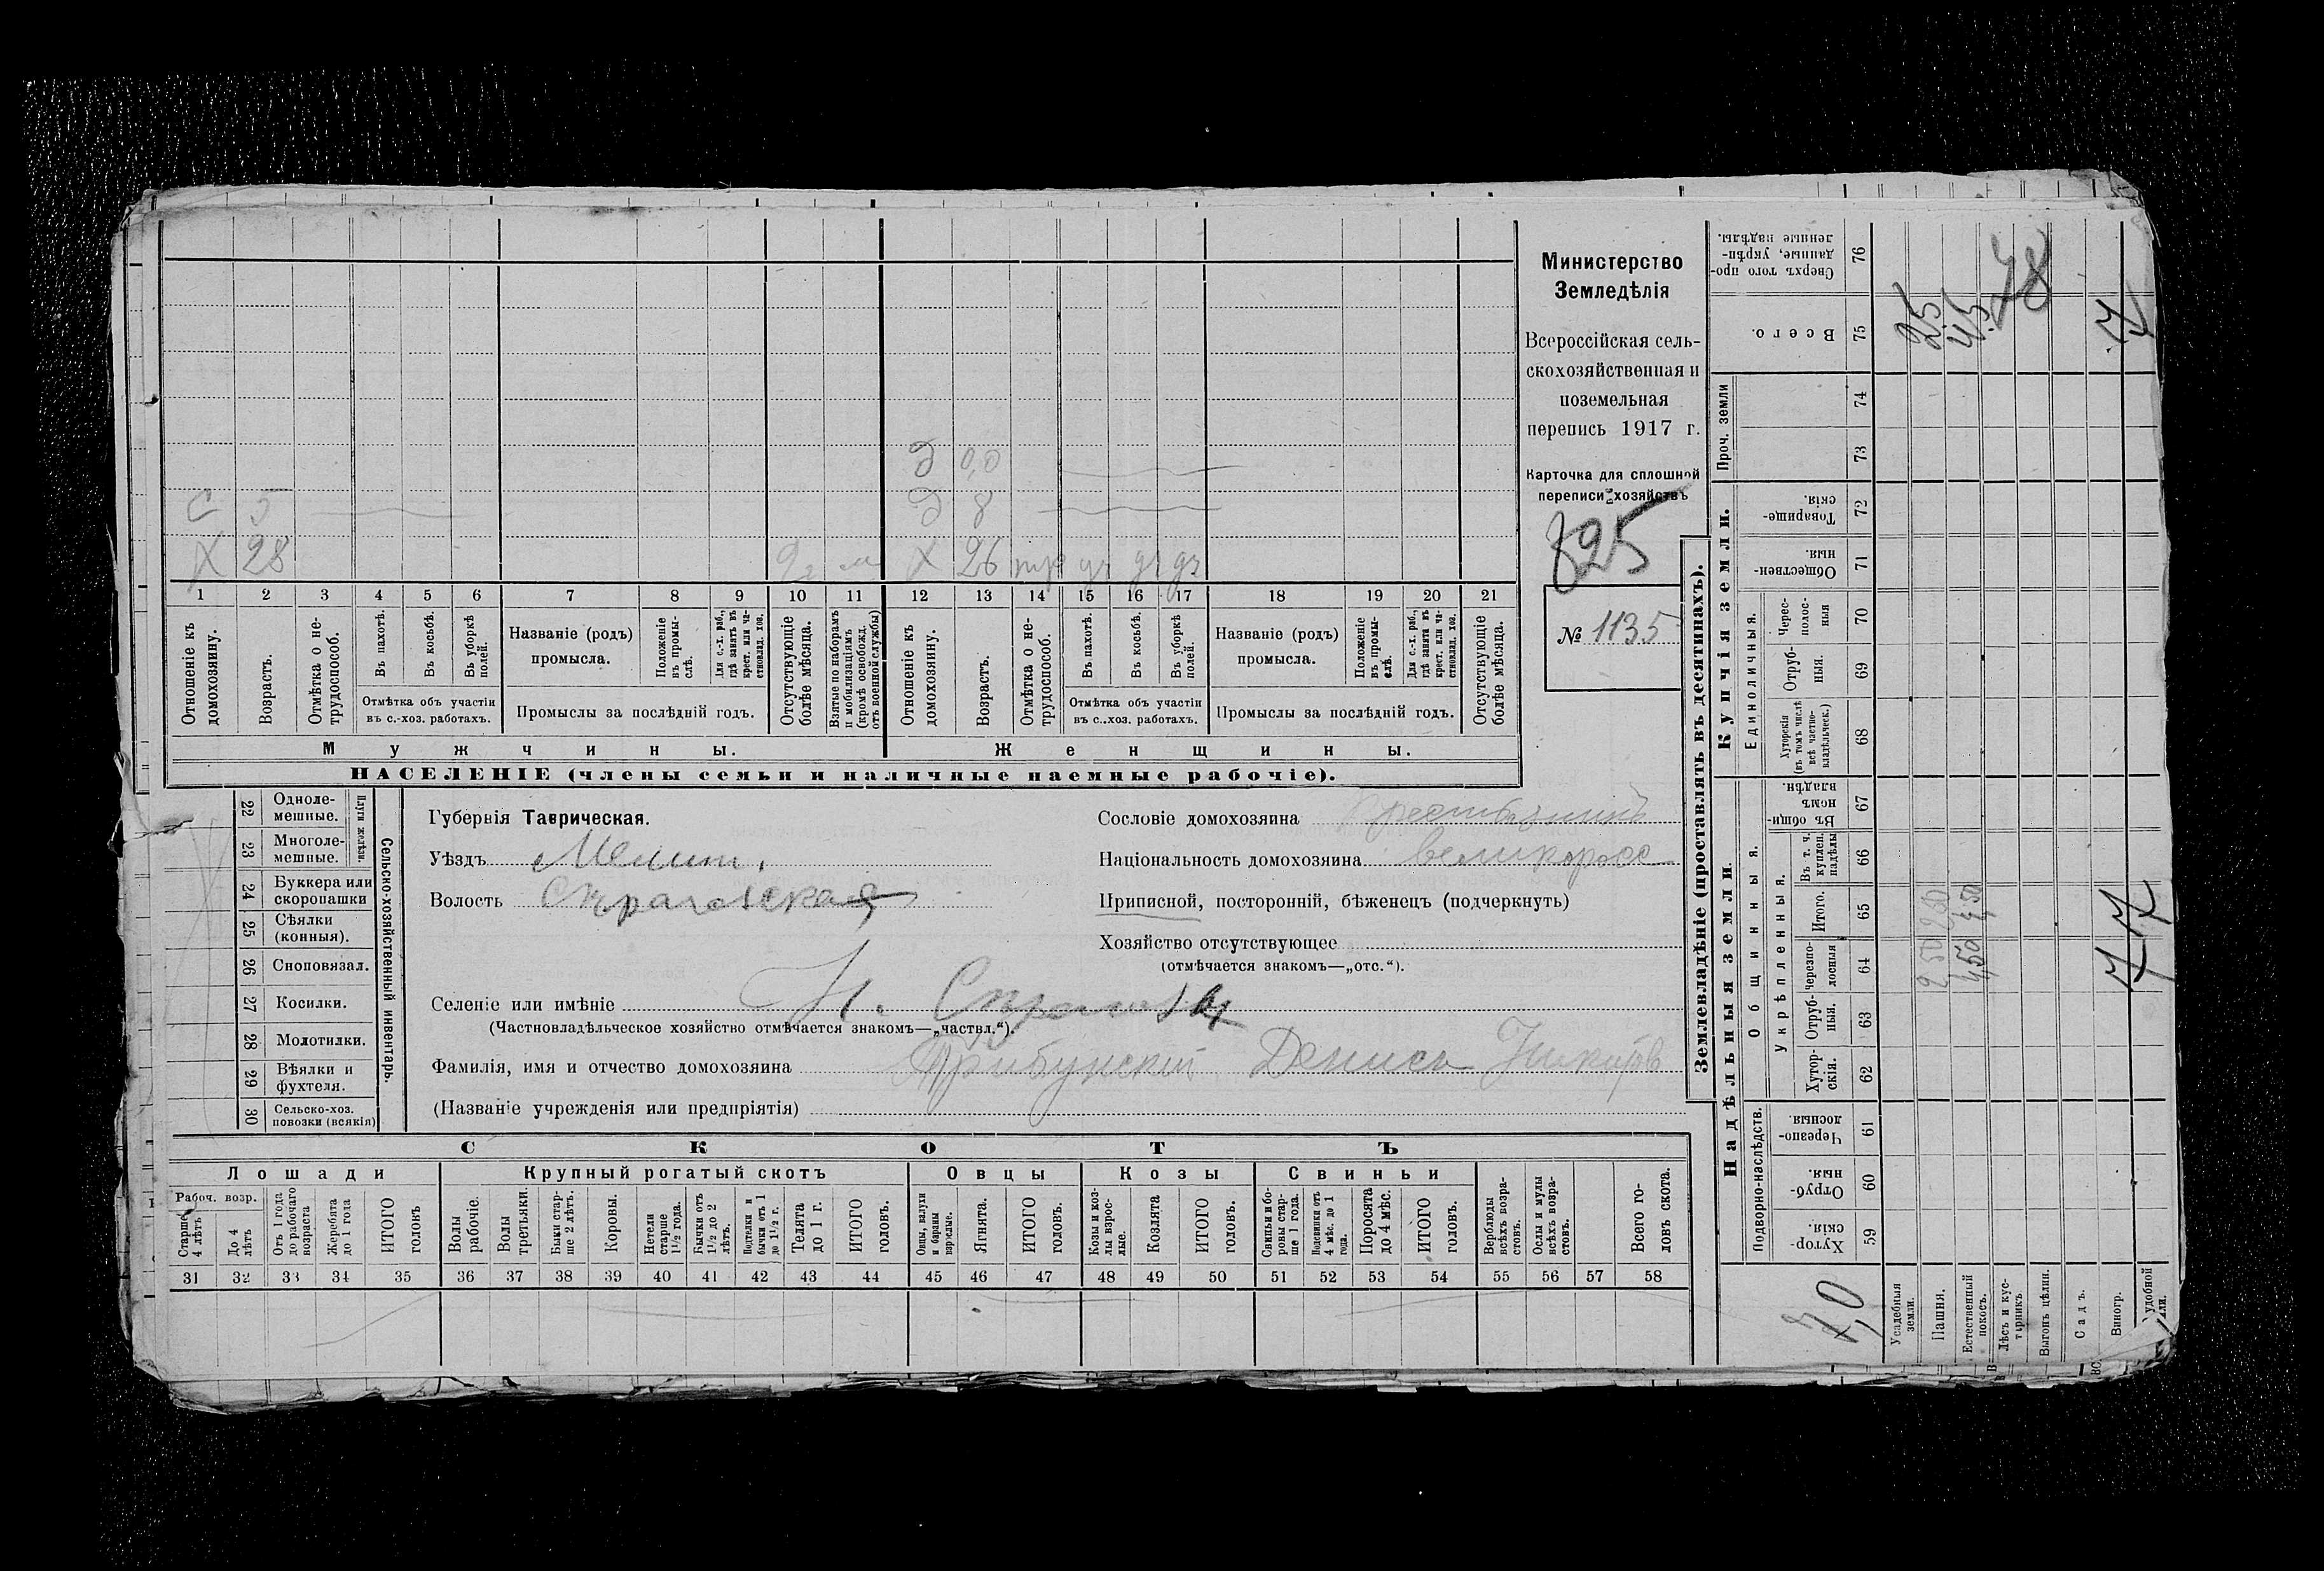 Д 0,0
С 5 Д 8
Х 28 Х 26
1 2 3 4 5 6 7 8 9 10 11 12 13 14 15 16 17 18 19 20 21
Отношеніе къ домохозяину.
Возрастъ.
Отмѣтка о не-трудоспособ.
Въ пахотѣ.
Въ косьбѣ.
Въ уборкѣ полей.
Отмѣтка объ участіи въ с.-хоз. работахъ.
Названіе (родъ) промысла.
Положеніе въ промы-слѣ.
Для с.-х. раб., гдѣ занятъ въ крест. или ча-стновлад. хоз.
Промыслы за послѣдній годъ.
Отсутствующіе болѣе мѣсяца.
Взятые по наборамъ и мобилизаціямъ (кромѣ освобожд. отъ военной службы)
Отношеніе къ домохозяину.
Возрастъ.
Отмѣтка о не-трудоспособ.
Въ пахотѣ.
Въ косьбѣ.
Въ уборкѣ полей.
Отмѣтка объ участіи въ с.-хоз. работахъ.
Названіе (родъ) промысла.
Положеніе въ промы-слѣ.
Для с.-х. раб., гдѣ заняти въ крест. или ча-стновлад. хоз.
Промыслы за послѣдній годъ.
Отсутствующіе болѣе мѣсяца.
Мужчины. Женщины.
НАСЕЛЕНІЕ (члены семьи и наличные наемные рабочіе).
Министерство
Земледѣлія
Всероссійская сель-
скохозяйственная и
поземельная
перепись 1917 г.
Карточка для сплошной
переписи хозяйствъ
825
№ 1135
22 Одноле-мешные.
23 Многоле-мешные.
Плуги желѣзн.
24 Буккера или скоропашки
25 Сѣялки (конныя).
26 Сноповязал.
27 Косилки.
28 Молотилки.
29 Вѣялки и фухтеля.
30 Сельско-хоз. повозки (всякія)
Сельско-хозяйственный инвентарь.
Губернія Таврическая.
Уѣздъ Мелит.
Волость
Сословіе домохозяина
Національность домохозяина великоросс
Приписной, посторонній, бѣженецъ (подчеркнуть)
Хозяйство отсутствующее
(отмѣчается знакомъ—„отс.“).
Селеніе или имѣніе Н.
(Частновладѣльческое хозяйство отмѣчается знакомъ—„частвл.“).
Фамилія, имя и отчество домохозяина Трибунскій Денисъ Никитов
(Названіе учрежденія или предпріятія)
СКОТЪ
Лошади Крупный рогатый скотъ Овцы Козы Свиньи
Рабоч. возр.
Старше 4 лѣтъ
До 4 лѣтъ
Отъ 1 года до рабочаго возраста
Жеребята до 1 года
ИТОГО головъ
Волы рабочіе.
Волы третьяки.
Быки стар-ше 2 лѣтъ.
Коровы.
Нетели старше 1½ года.
Бычки отъ 1½ до 2 лѣтъ.
Подтелки и бычки отъ 1 до 1½ г.
Телята до 1 г.
ИТОГО головъ.
Овцы, валухи и бараны взрослые.
Ягнята.
ИТОГО головъ.
Козы и коз-лы взрос-лые.
Козлята
ИТОГО головъ.
Свиньи и бо-ровы стар-ше 1 года.
Подсвинки отъ 4 мѣс. до 1 года.
Поросята до 4 мѣс.
ИТОГО головъ.
Верблюды всѣхъ возра-стовъ.
Ослы и мулы всѣхъ возра-стовъ.
Всего го-ловъ скота.
31 32 33 34 35 36 37 38 39 40 41 42 43 44 45 46 47 48 49 50 51 52 53 54 55 56 57 58
Землевладѣніе (проставлять въ десятинахъ).
Надѣльныя земли. Купчія земли.
Подворно-наслѣдств.
Общинныя.
Укрѣпленныя.
Единоличныя.
Проч. земли
Хутор-скія. 59
Отруб-ныя. 60
Черезпо-лосныя 61
Хутор-скія. 62
Отруб-ныя. 63
черезпо-лосныя 64
Итого. 65
Въ т. ч. куплен. надѣлы 66
Въ общи-номъ владѣн. 67
Хуторскія (въ томъ числѣ всѣ частно-владѣльческ.) 68
Отруб-ныя. 69
Черес-полос-ныя 70
Обществен-ныя. 71
Товарище-скія. 72
73
74
Всего. 75
Сверхъ того про-данные, укрѣп-ленные надѣлы. 76
Усадебныя земли.
Пашня.
Естественный покосъ.
Лѣсъ и кус-тарникъ
Выгонъ цѣлин.
Садъ.
Виногр.
25
45